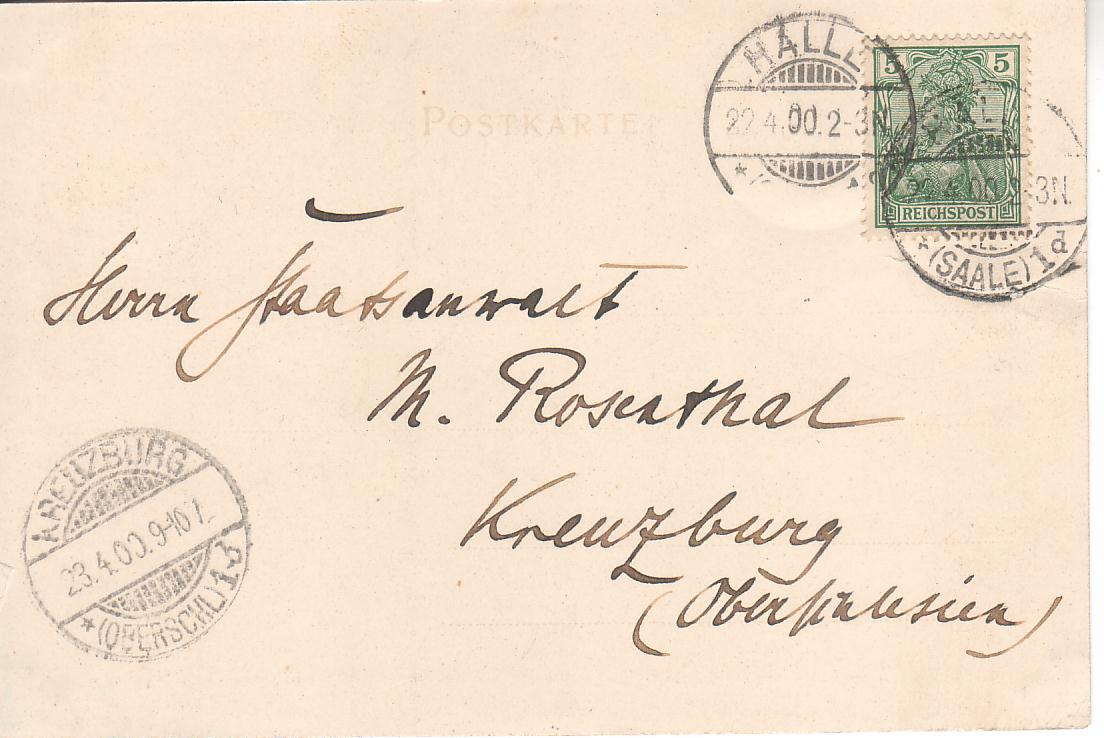 POSTKARTE
HALLE
22.4.00.2-3N
5 5
REICHSPOST
22.4.00.2-3N.
*(SAALE)1d
Herrn Staatsanwalt
M. Rosenthal
Kreuzburg
(Oberschlesien)
KREUZBURG
23.4.00.9-10
*(OBERSCHL)1b